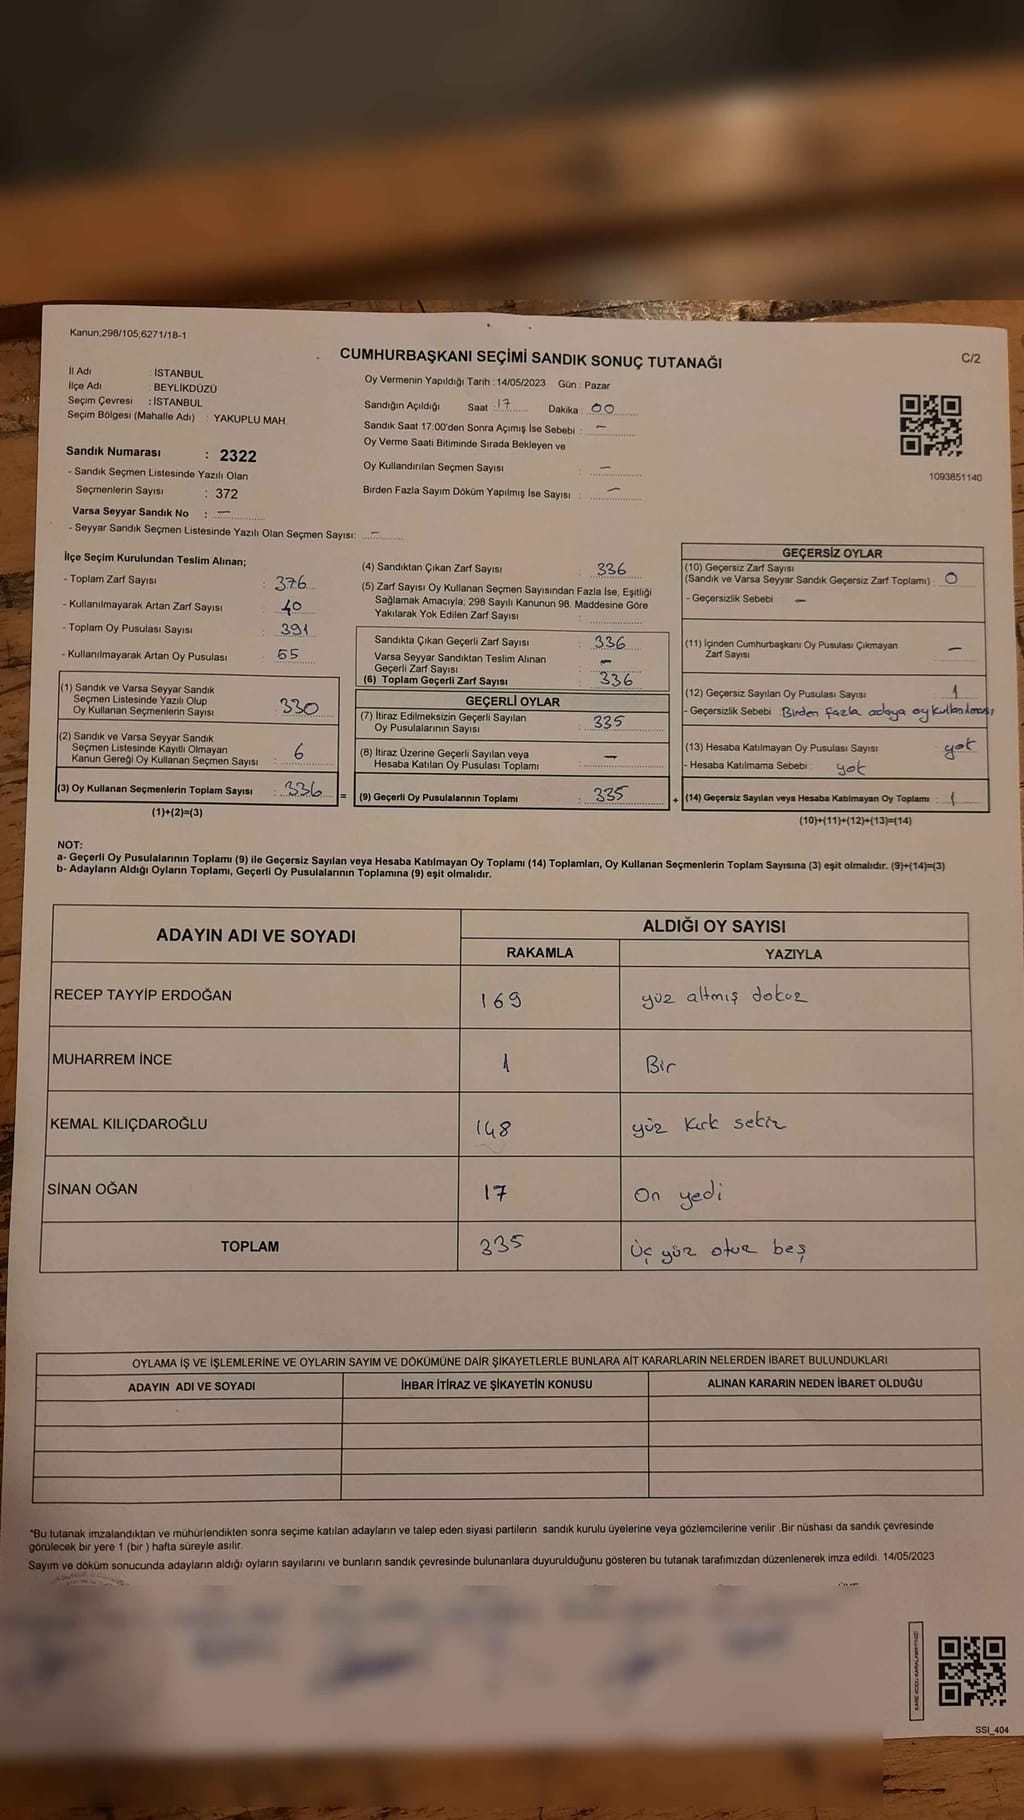 Kanun,298/105,6271/18-1
CUMHURBAŞKANI SEÇİMİ SANDIK SONUÇ TUTANAĞI
C/2
İl Adı : İSTANBUL
İlçe Adı : BEYLİKDÜZÜ
Seçim Çevresi : İSTANBUL
Seçim Bölgesi (Mahalle Adı) : YAKUPLU MAH.
Oy Vermenin Yapıldığı Tarih : 14/05/2023 Gün : Pazar
Sandığın Açıldığı Saat : 17 Dakika : 00
Sandık Saat 17:00'den Sonra Açımış İse Sebebi : -
Oy Verme Saati Bitiminde Sırada Bekleyen ve
Oy Kullandırılan Seçmen Sayısı : -
Birden Fazla Sayım Döküm Yapılmış İse Sayısı : -
1093851140
Sandık Numarası : 2322
- Sandık Seçmen Listesinde Yazılı Olan
Seçmenlerin Sayısı : 372
Varsa Seyyar Sandık No : -
- Seyyar Sandık Seçmen Listesinde Yazılı Olan Seçmen Sayısı: -
İlçe Seçim Kurulundan Teslim Alınan;
- Toplam Zarf Sayısı : 376
- Kullanılmayarak Artan Zarf Sayısı : 40
- Toplam Oy Pusulası Sayısı : 391
- Kullanılmayarak Artan Oy Pusulası : 55
(1) Sandık ve Varsa Seyyar Sandık
Seçmen Listesinde Yazılı Olup
Oy Kullanan Seçmenlerin Sayısı : 330
(2) Sandık ve Varsa Seyyar Sandık
Seçmen Listesinde Kayıtlı Olmayan
Kanun Gereği Oy Kullanan Seçmen Sayısı : 6
(3) Oy Kullanan Seçmenlerin Toplam Sayısı : 336
(1)+(2)=(3)
=
(4) Sandıktan Çıkan Zarf Sayısı : 336
(5) Zarf Sayısı Oy Kullanan Seçmen Sayısından Fazla İse, Eşitliği
Sağlamak Amacıyla, 298 Sayılı Kanunun 98. Maddesine Göre
Yakılarak Yok Edilen Zarf Sayısı :
Sandıkta Çıkan Geçerli Zarf Sayısı : 336
Varsa Seyyar Sandıktan Teslim Alınan
Geçerli Zarf Sayısı : -
(6) Toplam Geçerli Zarf Sayısı : 336
GEÇERLİ OYLAR
(7) İtiraz Edilmeksizin Geçerli Sayılan
Oy Pusulalarının Sayısı : 335
(8) İtiraz Üzerine Geçerli Sayılan veya
Hesaba Katılan Oy Pusulası Toplamı : -
(9) Geçerli Oy Pusulalarının Toplamı : 335
+
GEÇERSİZ OYLAR
(10) Geçersiz Zarf Sayısı
(Sandık ve Varsa Seyyar Sandık Geçersiz Zarf Toplamı) : 0
- Geçersizlik Sebebi : -
(11) İçinden Cumhurbaşkanı Oy Pusulası Çıkmayan
Zarf Sayısı : -
(12) Geçersiz Sayılan Oy Pusulası Sayısı : 1
- Geçersizlik Sebebi : Birden fazla adaya oy kullanılması
(13) Hesaba Katılmayan Oy Pusulası Sayısı : yok
- Hesaba Katılmama Sebebi : yok
(14) Geçersiz Sayılan veya Hesaba Katılmayan Oy Toplamı : 1
(10)+(11)+(12)+(13)=(14)
NOT:
a- Geçerli Oy Pusulalarının Toplamı (9) ile Geçersiz Sayılan veya Hesaba Katılmayan Oy Toplamı (14) Toplamları, Oy Kullanan Seçmenlerin Toplam Sayısına (3) eşit olmalıdır. (9)+(14)=(3)
b- Adayların Aldığı Oyların Toplamı, Geçerli Oy Pusulalarının Toplamına (9) eşit olmalıdır.
ADAYIN ADI VE SOYADI
ALDIĞI OY SAYISI
RAKAMLA YAZIYLA
RECEP TAYYİP ERDOĞAN 169 yüz altmış dokuz
MUHARREM İNCE 1 Bir
KEMAL KILIÇDAROĞLU 148 yüz kırk sekiz
SİNAN OĞAN 17 On yedi
TOPLAM 335 Üç yüz otuz beş
OYLAMA İŞ VE İŞLEMLERİNE VE OYLARIN SAYIM VE DÖKÜMÜNE DAİR ŞİKAYETLERLE BUNLARA AİT KARARLARIN NELERDEN İBARET BULUNDUKLARI
ADAYIN ADI VE SOYADI İHBAR İTİRAZ VE ŞİKAYETİN KONUSU ALINAN KARARIN NEDEN İBARET OLDUĞU
*Bu tutanak imzalandıktan ve mühürlendikten sonra seçime katılan adayların ve talep eden siyasi partilerin sandık kurulu üyelerine veya gözlemcilerine verilir .Bir nüshası da sandık çevresinde
görülecek bir yere 1 (bir ) hafta süreyle asılır.
Sayım ve döküm sonucunda adayların aldığı oyların sayılarını ve bunların sandık çevresinde bulunanlara duyurulduğunu gösteren bu tutanak tarafımızdan düzenlenerek imza edildi. 14/05/2023
KARE KODU KARALAMAYINIZ!
SSI_404